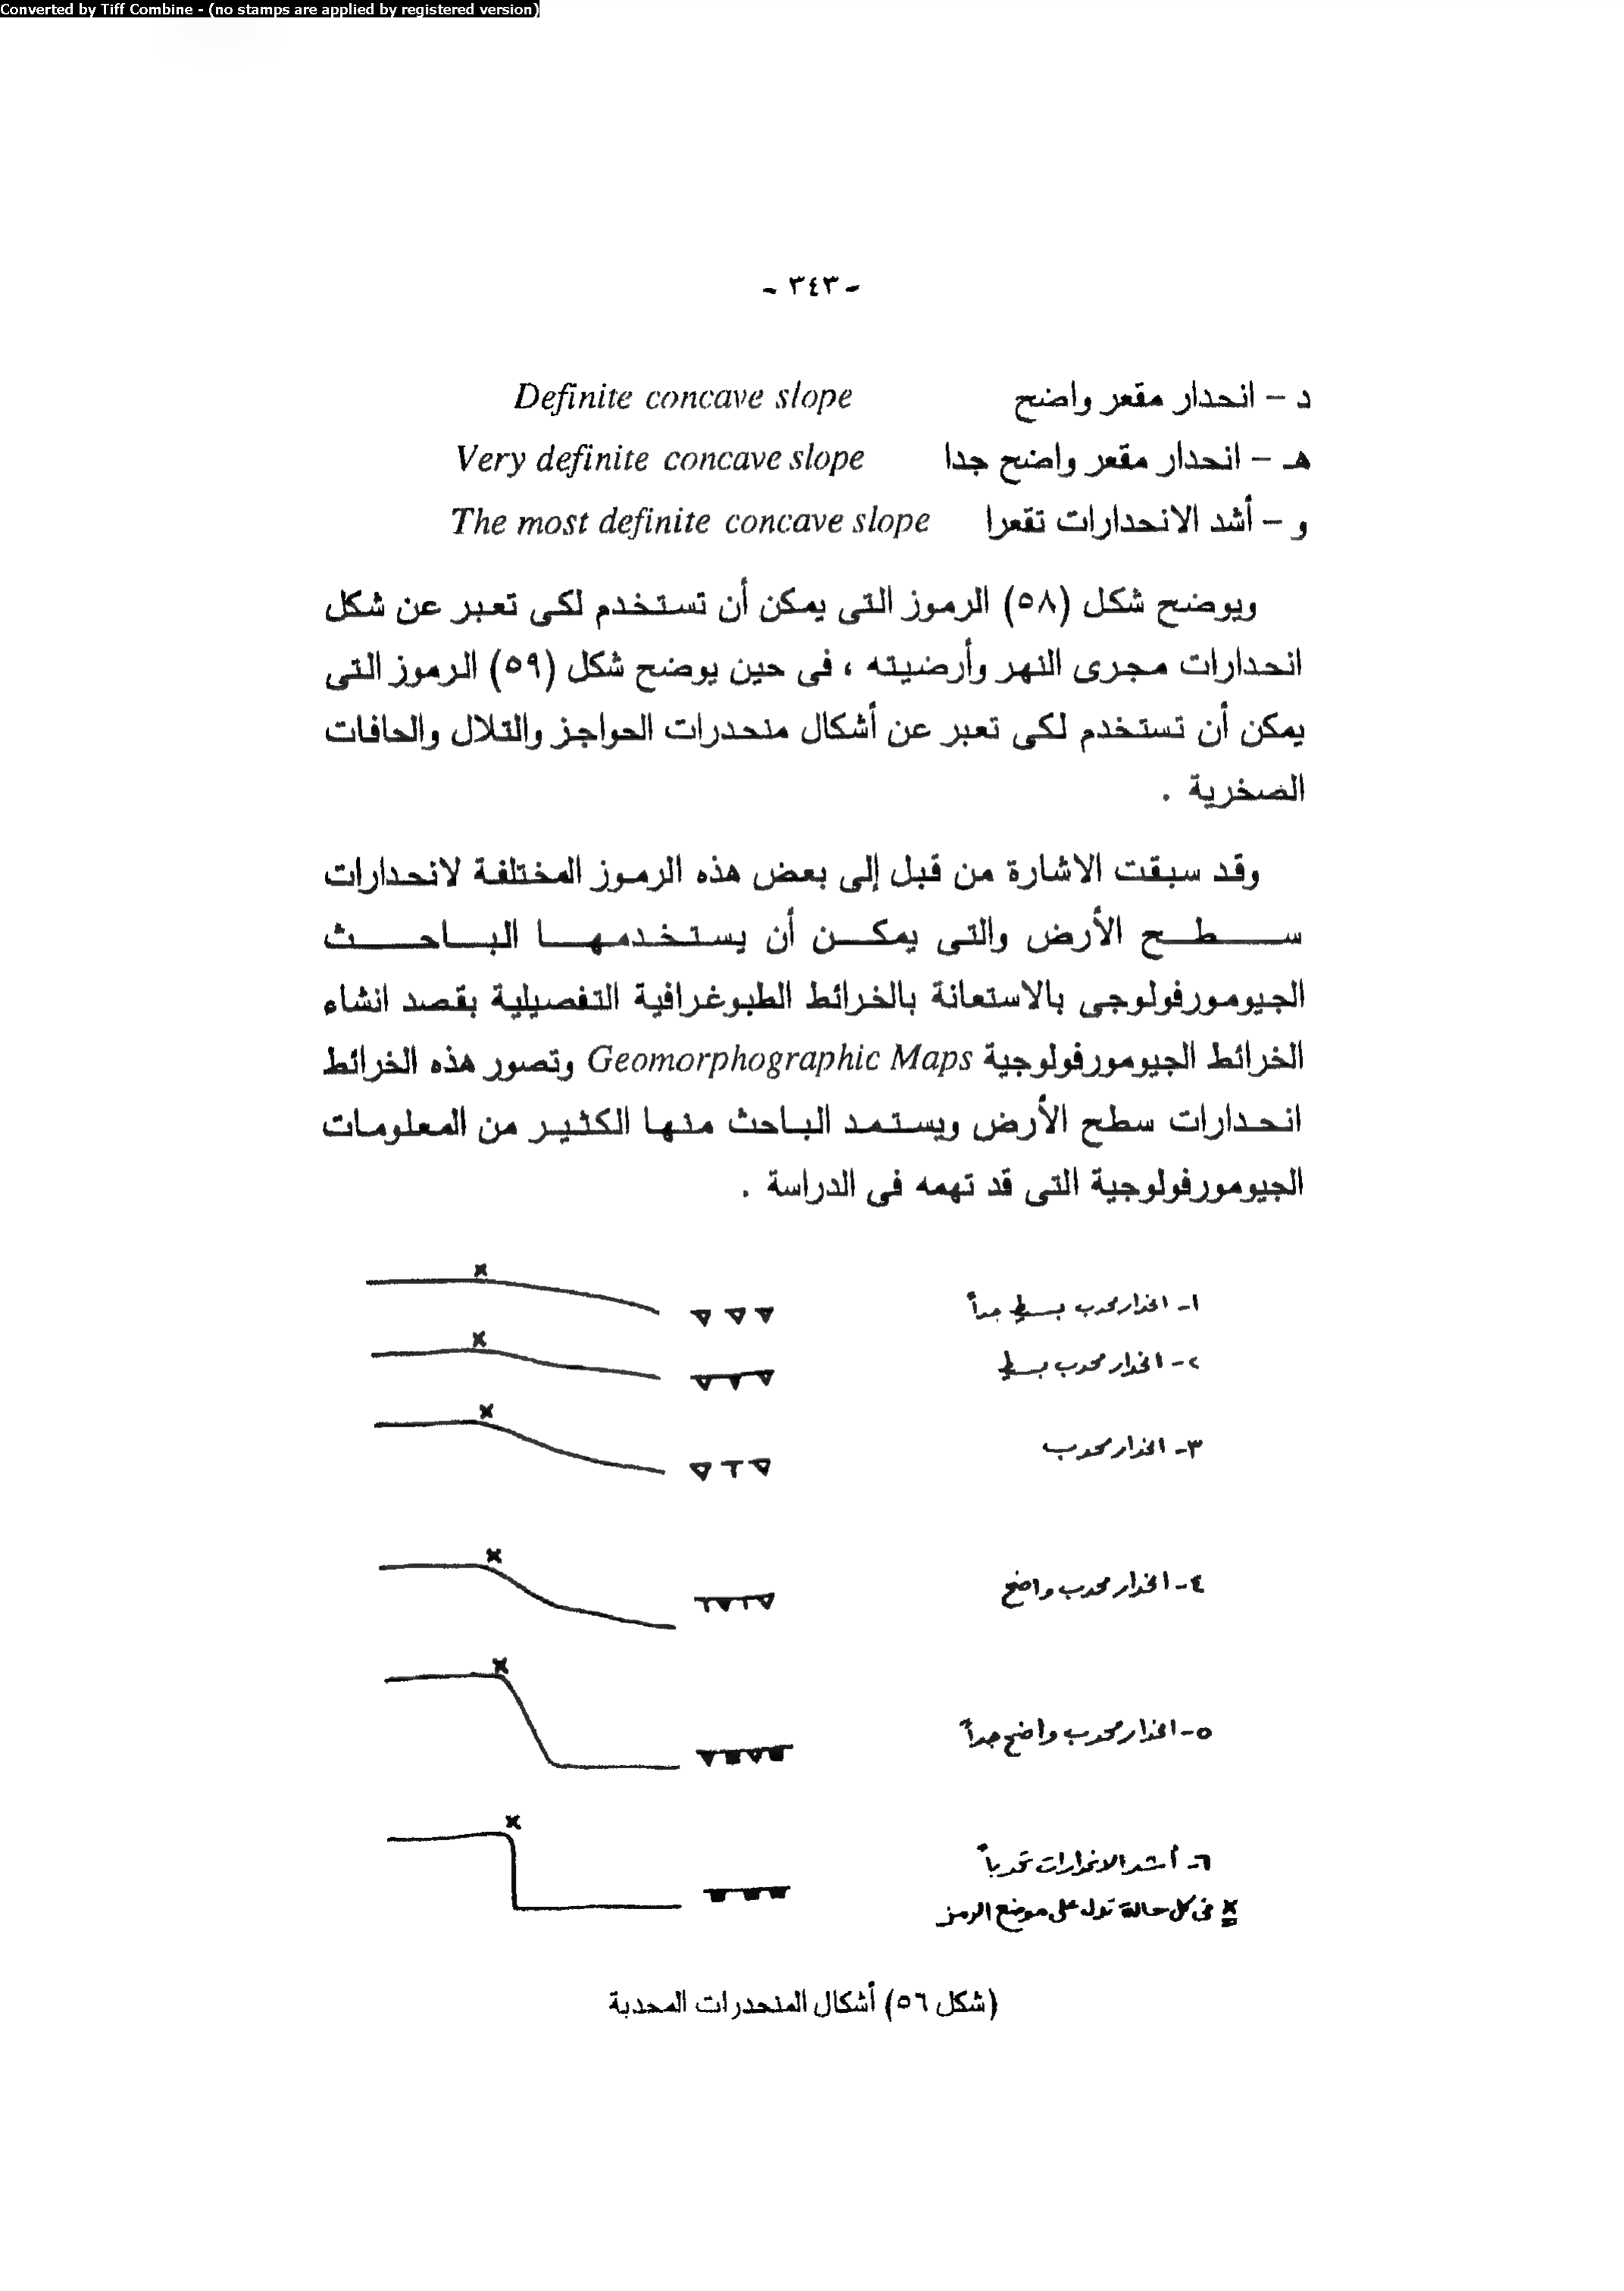 Converted by Tiff Combine - (no stamps are applied by registered version)
- ٣٤٣ -
د - انحدار مقعر واضح Definite concave slope
هـ - انحدار مقعر واضح جدا Very definite concave slope
و - أشد الانحدارات تقعرا The most definite concave slope
ويوضح شكل (٥٨) الرموز التى يمكن أن تستخدم لكى تعبر عن شكل
انحدارات مجرى النهر وأرضيته ، فى حين يوضح شكل (٥٩) الرموز التى
يمكن أن تستخدم لكى تعبر عن أشكال منحدرات الحواجز والتلال والحافات
الصخرية .
وقد سبقت الاشارة من قبل إلى بعض هذه الرموز المختلفة لانحدارات
سطح الأرض والتى يمكن أن يستخدمها الباحث
الجيومورفولوجى بالاستعانة بالخرائط الطبوغرافية التفصيلية بقصد انشاء
الخرائط الجيومورفولوجية Geomorphographic Maps وتصور هذه الخرائط
انحدارات سطح الأرض ويستمد الباحث منها الكثير من المعلومات
الجيومورفولوجية التى قد تهمه فى الدراسة .
١- انحدار محدب بسيط جداً
٢- انحدار محدب بسيط
٣- انحدار محدب
٤- انحدار محدب واضح
٥- انحدار محدب واضح جداً
٦- أشد الانحدارات تحدباً
x فى كل حالة تدل على موضع الرمز
(شكل ٥٦) أشكال المنحدرات المحدبة